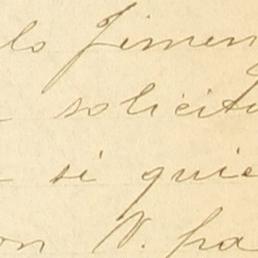 lo Jimen
solicitu
si quie
on V. pa